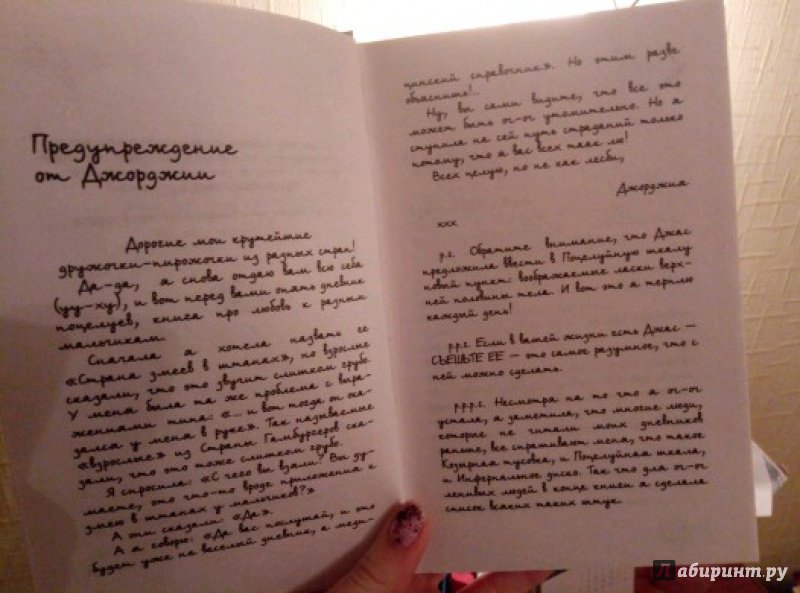 Предупреждение
от Джорджии
Дорогие мои крутейшие
дружочки-пирожочки из разных стран!
Да-да, я снова отдаю вам всю себя
(ууу-ху), и вот перед вами опять дневник
поцелуев, книга про любовь к разным
мальчикам.
Сначала я хотела назвать её
«Страна змеев в штанах», но взрослые
сказали, что это звучит слишком грубо.
У меня была та же проблема с выра-
жениями типа: «... и вот тогда он ока-
зался у меня в руке». Так называемые
«взрослые» из Страны Гамбургеров ска-
зали, что это тоже слишком грубо.
Я спросила: «С чего вы взяли? Вы ду-
маете, это что-то вроде приложения к
змею в штанах у мальчиков?»
А они сказали: «Да».
А я говорю: «Да вас послушай, и это
будет уже не весёлый дневник, а меди-
цинский справочник». Но этим разве
объяснишь!..
Ну, вы сами видите, что всё это
может быть оч-оч утомительно. Но я
ступила на сей путь страданий только
потому, что я вас всех таак лю!
Всех целую, но не как лесби,
Джорджия
ххх
p.s. Обратите внимание, что Джас
предложила ввести в Поцелуйную шкалу
новый пункт: воображаемые ласки верх-
ней половины тела. И вот это я терплю
каждый день!
p.p.s. Если в вашей жизни есть Джас —
СЪЕШЬТЕ ЕЕ — это самое разумное, что с
ней можно сделать.
p.p.p.s. Несмотря на то что я оч-оч
устала, я заметила, что многие люди,
которые не читали моих дневников
раньше, всё спрашивают меня, что такое
Козырная тусовка, и Поцелуйная шкала,
и Инфернальное диско. Так что для оч-оч
ленивых людей в конце книги я сделала
список всяких таких штук.
Лабиринт.ру